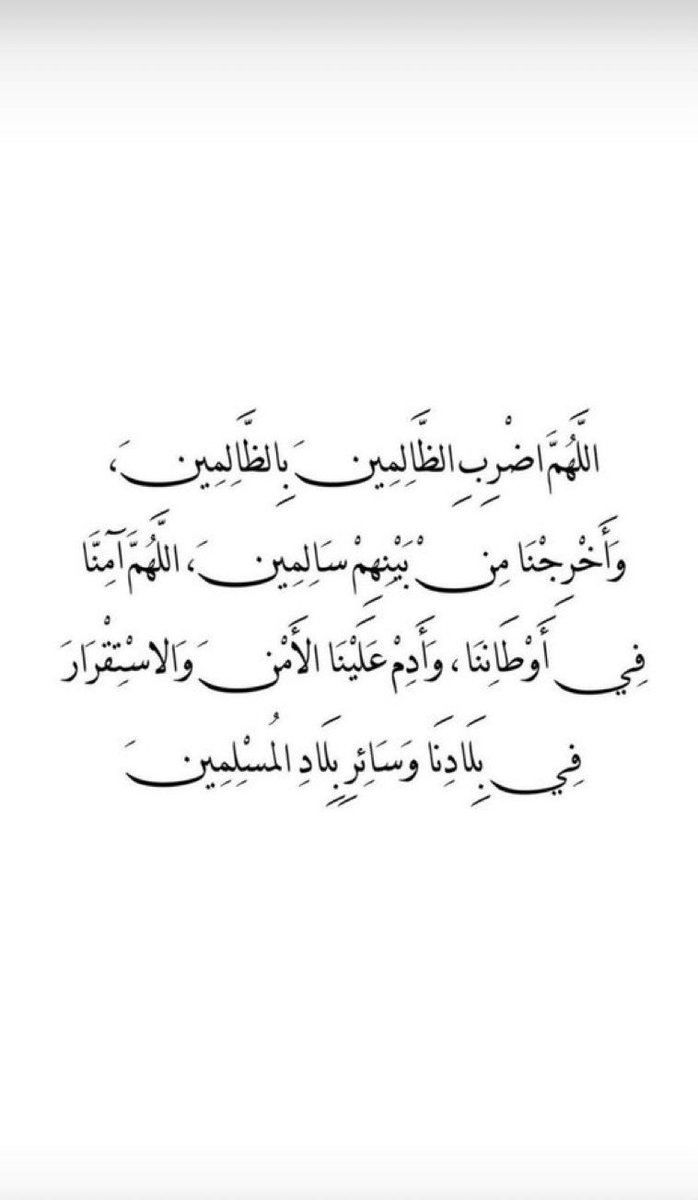 اللَّهُمَّ اضْرِبِ الظَّالِمِينَ بِالظَّالِمِينَ،
وَأَخْرِجْنَا مِنْ بَيْنِهِمْ سَالِمِينَ، اللَّهُمَّ آمِنَّا
فِي أَوْطَانِنَا، وَأَدِمْ عَلَيْنَا الأَمْنَ وَالاسْتِقْرَارَ
فِي بِلَادِنَا وَسَائِرِ بِلَادِ المُسْلِمِينَ